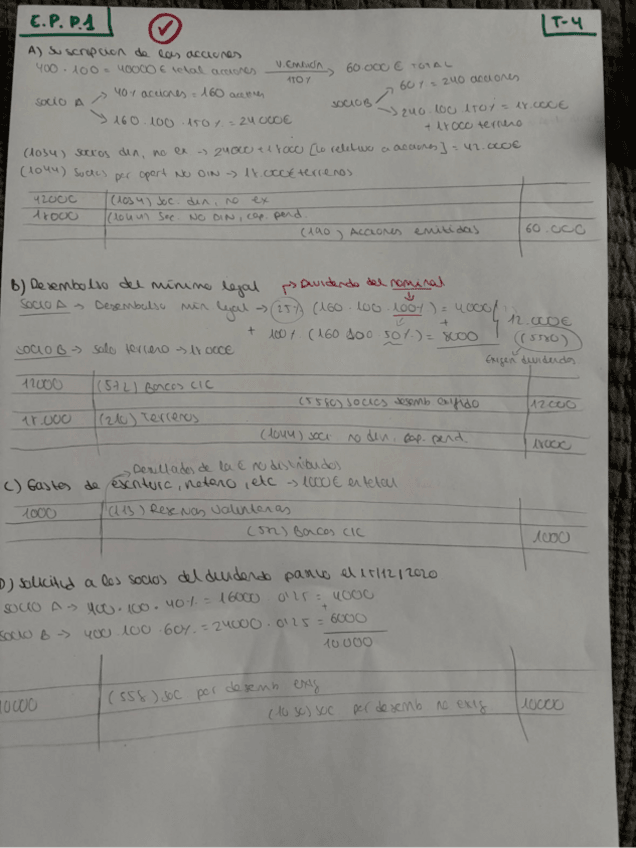 E.P.P.1
T-4
A) Suscripcion de las acciones
400 · 100 = 40000 € total acciones V. Emisión 150% → 60.000 € TOTAL
SOCIO A → 40% acciones = 160 acciones
→ 160 · 100 · 150% = 24000€
SOCIO B → 60% = 240 acciones
→ 240 · 100 150% = 18.000€
+ 18000 terreno
(1034) socios din, no ex → 24000 + 18000 [lo relativo a acciones] = 42.000€
(1044) Socios por aport NO DIN → 18.000€ terrenos
42000 (1034) Soc. din, no ex
18000 (1044) Soc. NO DIN, cap. pend.
(190) Acciones emitidas 60.000
B) Desembolso del mínimo legal → Dividendo del nominal
SOCIO A → Desembolso min legal → 25% (160 · 100 · 100%) = 4000
+ 100% (160 100 50%) = 8000
12.000€
(5580)
Exigen dividendos
SOCIO B → solo terreno → 18000€
12000 (572) Bancos C/C
(5580) Socios desemb exigido 12000
18.000 (210) Terrenos
(1044) soc no din, cap. pend. 18000
→ Resultados de la E no distribuidos
C) Gastos de escritura, notario, etc → 1000 € en total
1000 (113) Reservas Voluntarias
(572) Bancos C/C 1000
D) Solicitud a los socios del dividendo pasivo el 15/12/2020
SOCIO A → 400 · 100 · 40% = 16000 0'25 = 4000
+
SOCIO B → 400 100 60% = 24000 · 0'25 = 6000
10.000
10000 (558) soc por desemb exig
(1030) soc por desemb no exig 10000